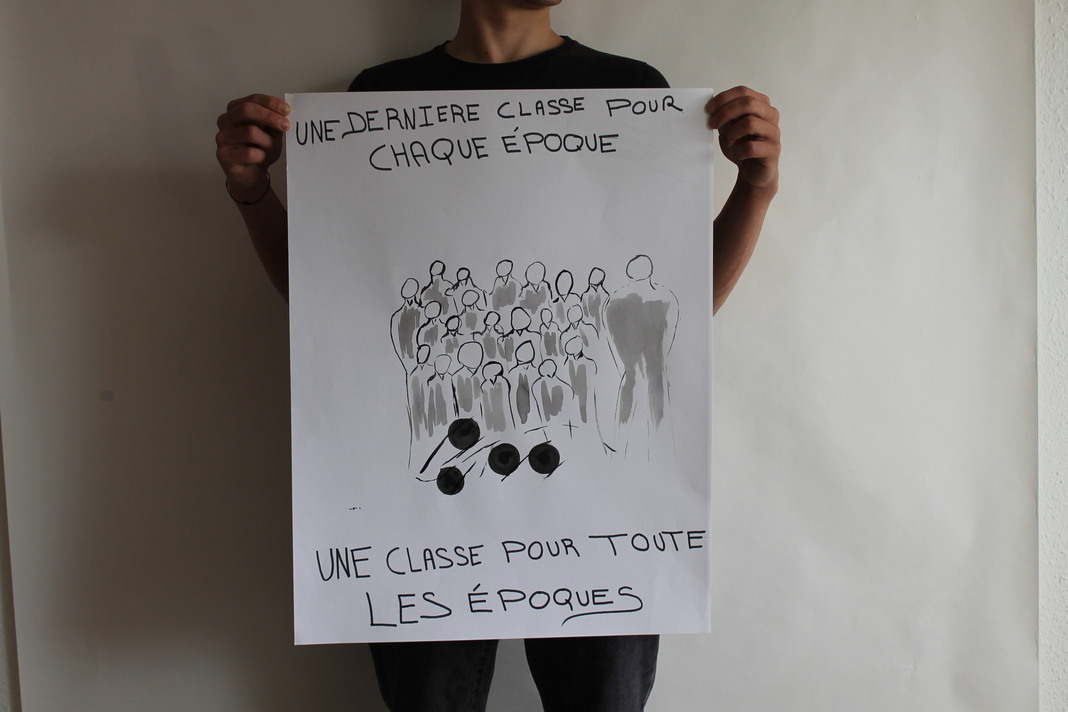 UNE DERNIERE CLASSE POUR
CHAQUE ÉPOQUE
UNE CLASSE POUR TOUTE
LES ÉPOQUES